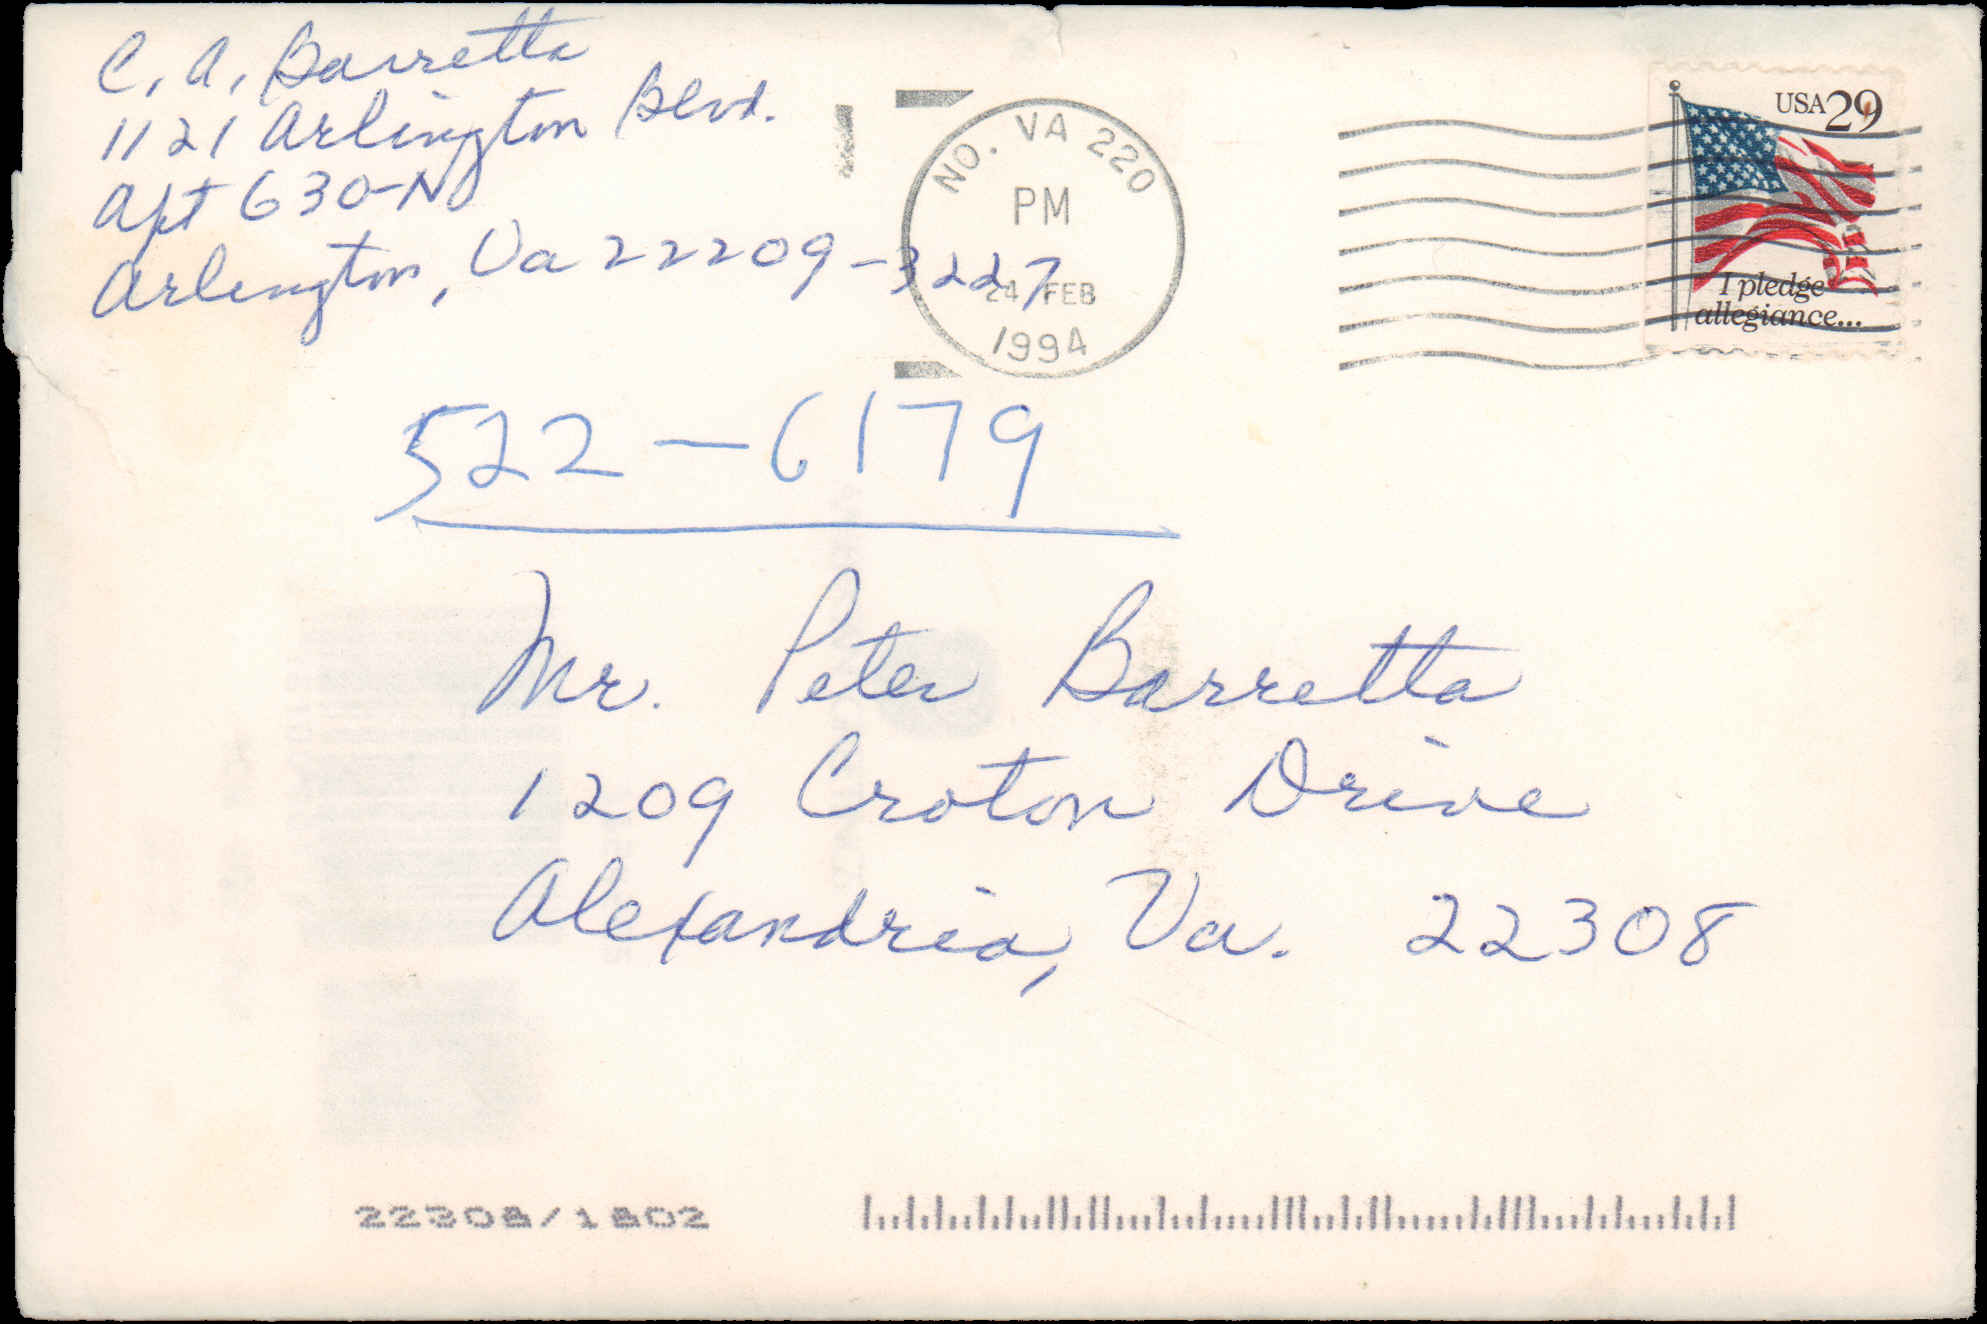 C. A. Barretta
1121 Arlington Blvd.
Apt 630-N
Arlington, Va 22209-3227
NO. VA 220
PM
24 FEB
1994
USA 29
I pledge
allegiance...
522-6179
Mr. Peter Barretta
1209 Croton Drive
Alexandria, Va. 22308
22308/1802